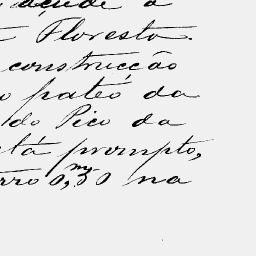 açude a
Floresta.
construcção
o pateo da
do Pico da
stá prompto,
rro 0,m50 na